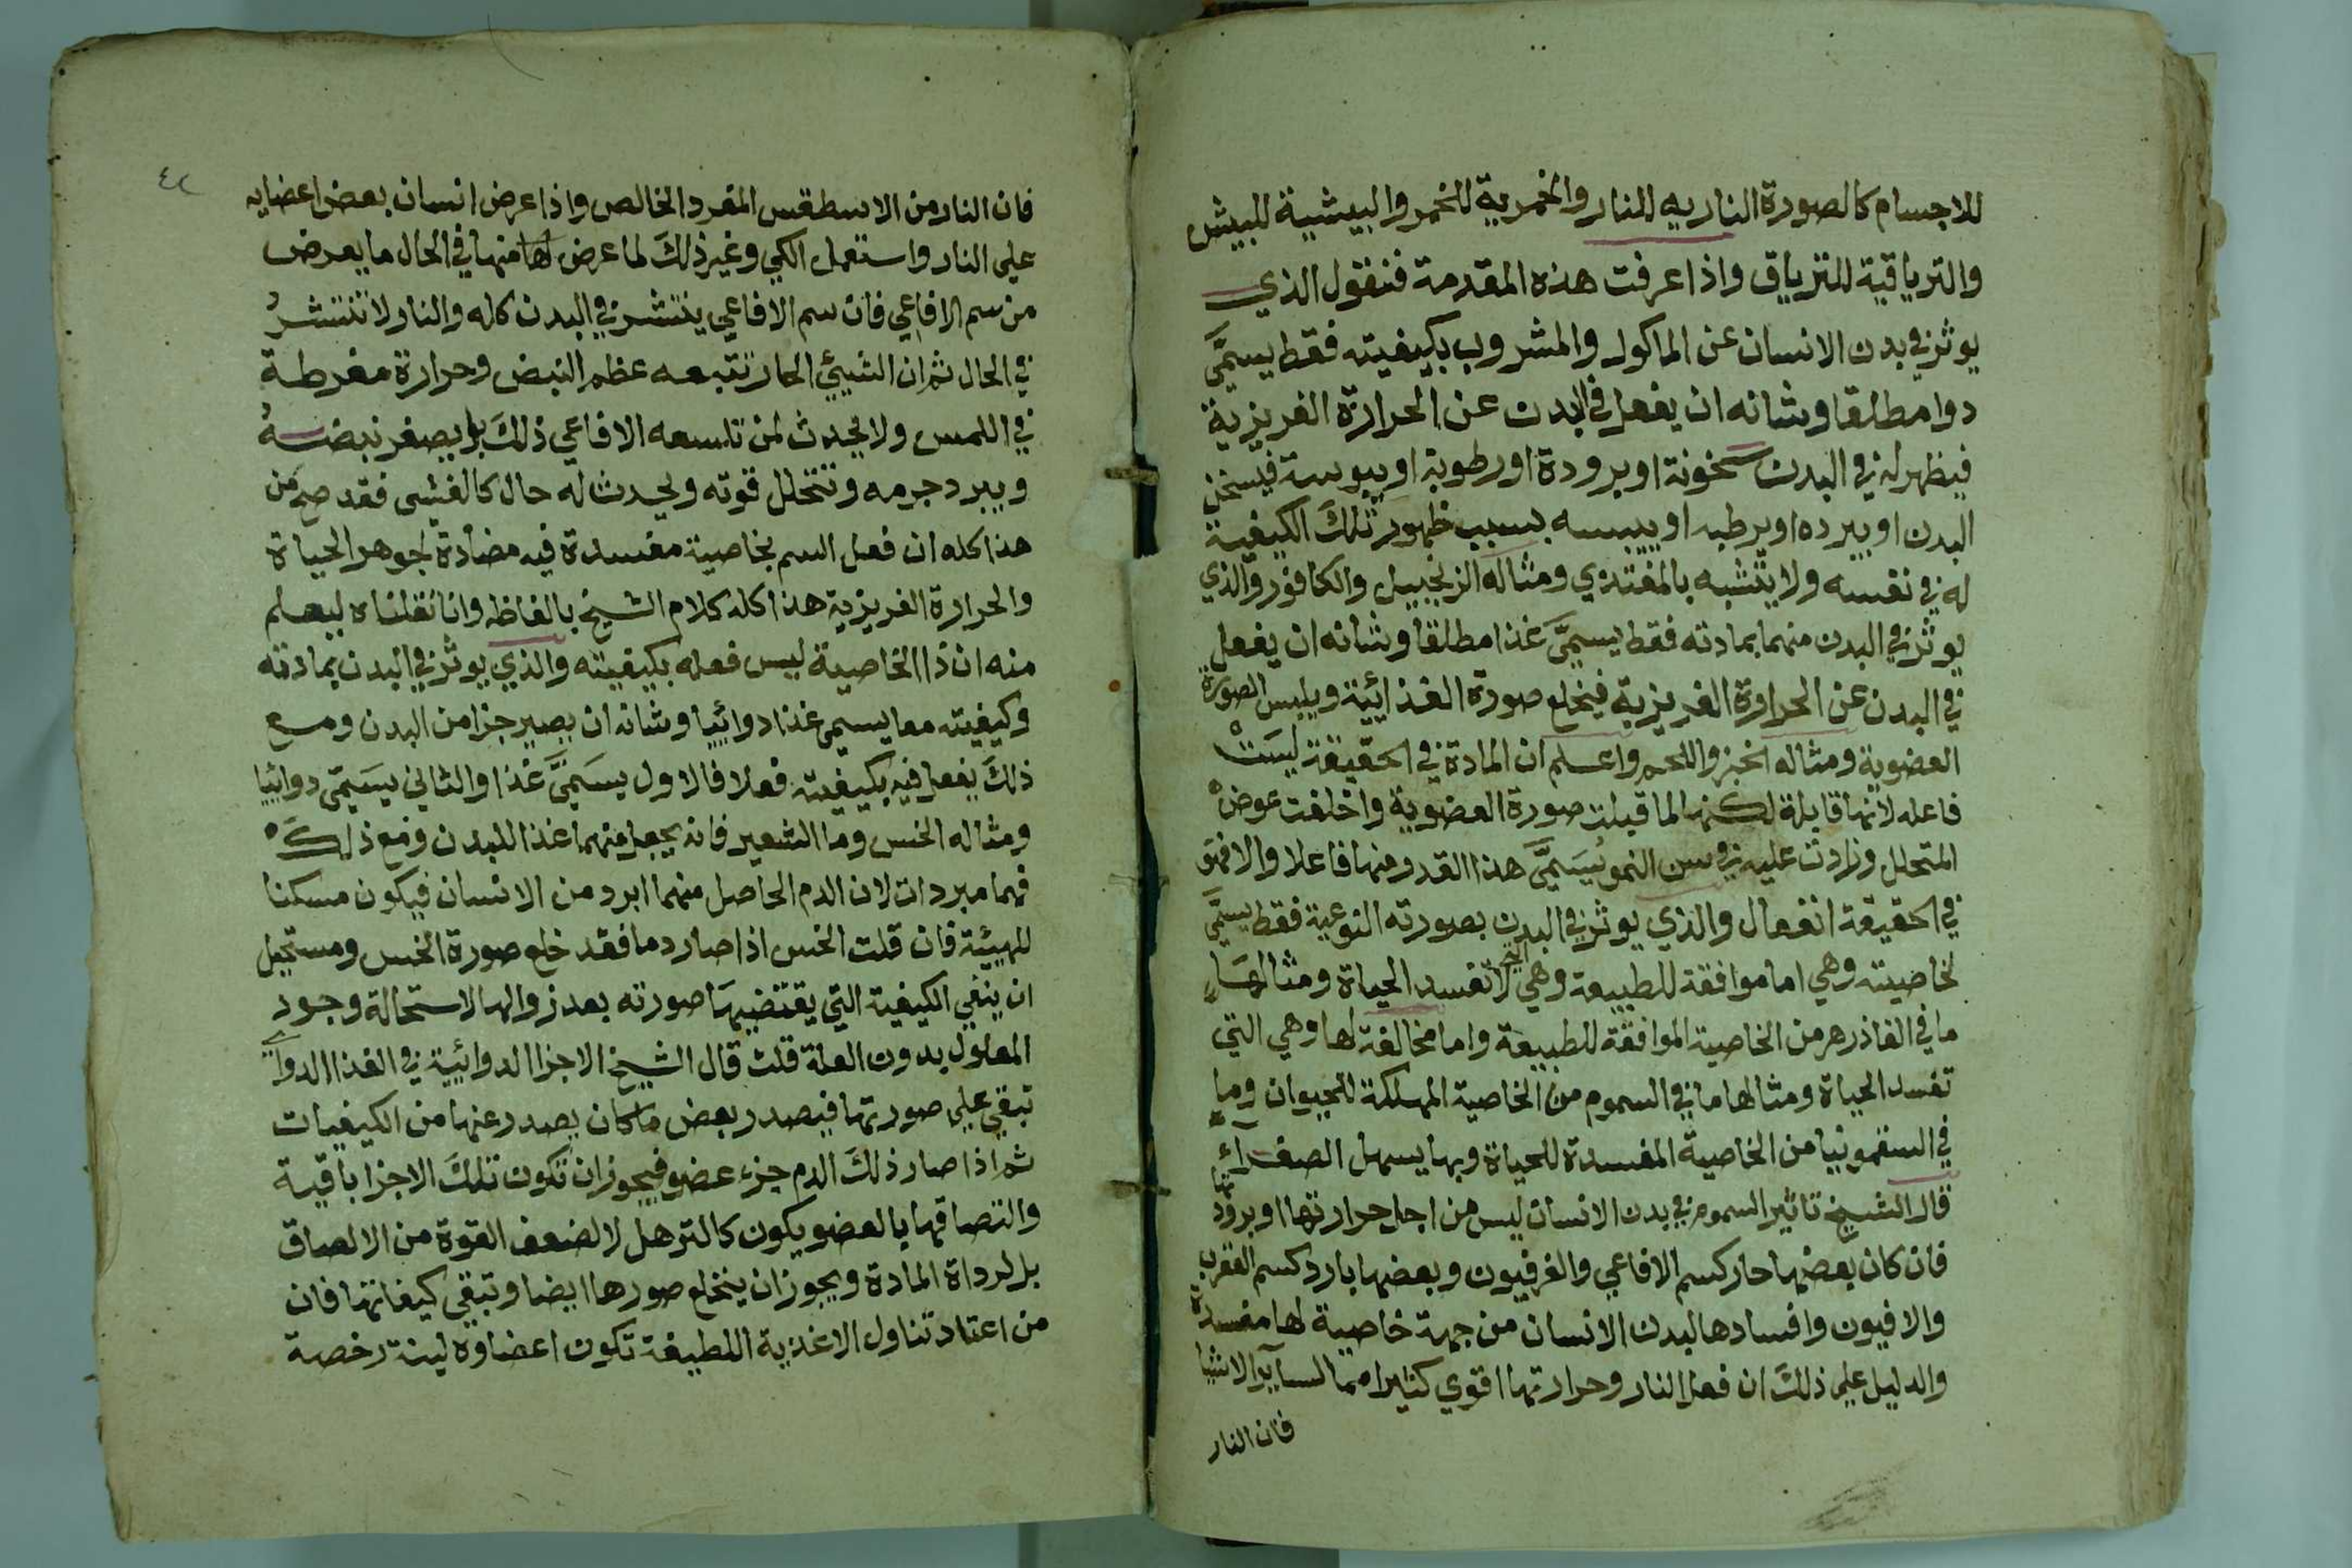 للاجسام كالصورة الناريه للنار والخمرية للخمر والبيشية للبيش
والترياقية للترياق واذا عرفت هذه المقدمة فنقول الذي
يوثر في بدن الانسان عن الماكول والمشروب بكيفيته فقط يسمَّى
دوا مطلقا وشانه ان يفعل في البدن عن الحرارة الغريزية
فيظهر له في البدن سخونة او برودة او رطوبة او يبوسة فيسخن
البدن او يبرده او يرطبه او ييبسه بسبب ظهور تلكَ الكيفية
له في نفسه ولا يتشبه بالمغتذي ومثاله الزنجبيل والكافور والذي
يوثر في البدن منهما بمادته فقط يسمَّى غذا مطلقا وشانه ان يفعل
في البدن عن الحرارة الغريزية فيخلع صورة الغذائية ويلبس الصورة
العضوية ومثاله الخبز واللحم واعلم ان المادة في الحقيقة ليسَتْ
فاعله لانها قابلة لكنها لما قبلت صورة العضوية واخلفت عوض
المتحلل وزادت عليه في سن النمو يُسَمَّى هذا القدر منها فاعلا والا فهو
في الحقيقة انفعال والذي يوثر في البدن بصورته النوعية فقط يسمَّى
بخاصيته وهي اما موافقة للطبيعة وهي التي لا تفسد الحياة ومثالهَا
ما في الفاذزهر من الخاصية الموافقة للطبيعة واما مخالفة لها وهي التي
تفسد الحياة ومثالها ما في السموم من الخاصية المهلكة للحيوان وما
في السقمونيا من الخاصية المفسدة للحياة وبها يسهل الصفراء
قال الشيخ تاثير السموم في بدن الانسان ليس من اجل حرارتها او برودتها
فان كان بعضها حار كسم الافاعي والفرفيون وبعضها بارد كسم العقرب
والافيون وافسادها لبدن الانسان من جهة خاصية لها مفسدة
والدليل على ذلكَ ان فعل النار وحرارتها اقوي كثيرا مما لساير الاشيا
فان النار
٤٢
فان النار من الاسطقس المفرد الخالص واذا عرض انسان بعض اعضايه
على النار واستعمل الكي وغير ذلكَ لما عرض لها منها في الحال ما يعرض
من سم الافاعي فان سم الافاعي ينتشر في البدن كله والنار لا تنتشرُ
في الحال ثم ان الشيئ الحار تتبعه عظم النبض وحرارة مفرطة
في اللمس ولا يحدث لمن تلسعه الافاعي ذلكَ بل يصغر نبضهُ
ويبرد جرمه وتتحلل قوته ويحدث له حال كالغشي فقد صح من
هذا كله ان فعل السم بخاصية مفسدة فيه مضادة لجوهر الحياة
والحرارة الغريزية هذا كله كلام الشيخ بالفاظه وانا نقلناه ليعلم
منه ان ذا الخاصية ليس فعله بكيفيته والذي يوثر في البدن بمادته
وكيفيته معا يسمى غذا دوائيا وشانه ان يصير جزا من البدن ومع
ذلكَ يفعل فيه بكيفيته فعلا فالاول يسَمَّى غذا والثاني يسَمّى دوائيا
ومثاله الخس وما الشعير فانه يجعل منهما غذا للبدن ومع ذلكَ
فهما مبردات لان الدم الحاصل منهما ابرد من الانسان فيكون مسكنا
للهيئة فان قلت الخس اذا صار دما فقد خلع صورة الخس ومستحيل
ان ينفي الكيفية التي يقتضيهَا صورته بعد زوالها لاستحالة وجود
المعلول بدون العلة قلت قال الشيخ الاجزا الدوائية في الغذا الدواي
تبقي على صورتها فيصدر بعض ما كان يصدر عنها من الكيفيات
ثم اذا صار ذلكَ الدم جزء عضو فيجوز ان تكون تلكَ الاجزا باقية
والتصاقها بالعضو يكون كالترهل لا لضعف القوة من الالصاق
بل لرداة المادة ويجوز ان ينخلع صورها ايضا وتبقي كيفاتها فان
من اعتاد تناول الاغذية اللطيفة تكون اعضاوه لينة رخصة